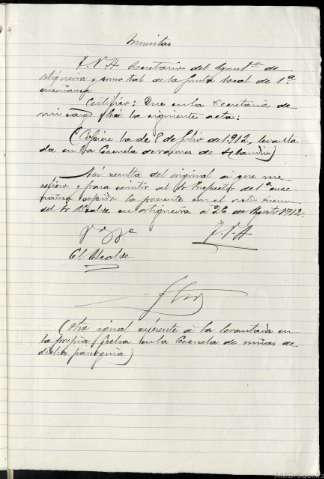 Minuta
J.V.A Secretario del Ayunt.º de
Ortigueira y como tal de la Junta local de 1ª
enseñanza
Certifico: Que en la Secretaría de
mi cargo la siguiente acta:
(Cópiese la de 8 de Julio de 1912, levanta
da en la Escuela de niños de )
Así resulta del original a que me
refiero y para remitir al Sr Inspector de 1ª ense
ñanza expido la presente con el visto bueno
del Sr Alcalde en Ortigueira a 26 de Agosto 1912
Vº Bº J.V.A
El Alcalde
(Otra igual referente a la levantada en
la propia fecha en la Escuela de niñas de
dicha parroquia)